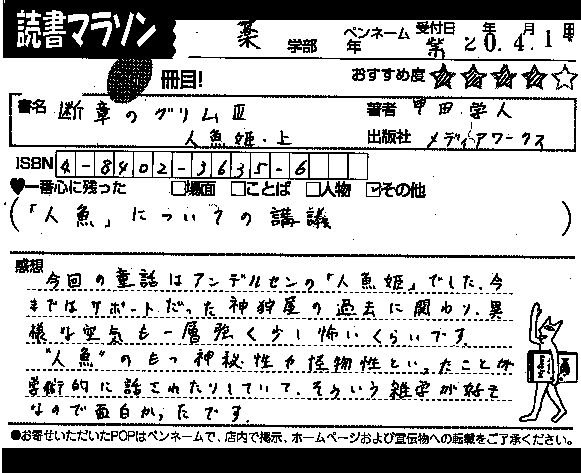 読書マラソン
薬 学部 年 ペンネーム 紫 受付日 20年4月1日
冊目!
おすすめ度 ★★★★☆
書名 断章のグリムⅢ 人魚姫・上
著者 甲田学人
出版社 メディアワークス
ISBN 4-8402-3635-6
♥一番心に残った □場面 □ことば □人物 ☑その他
(「人魚」についての講議)
感想
今回の童話はアンデルセンの「人魚姫」でした。今
まではサポートだった神狩屋の過去に関わり、異
様な空気も一層強く少し怖いくらいです。
"人魚"のもつ神秘性や怪物性といったことが
学術的に話されたりしていて、そういう雑学が好き
なので面白かったです。
●お寄せいただいたPOPはペンネームで、店内で掲示、ホームページおよび宣伝物への転載をご了承ください。